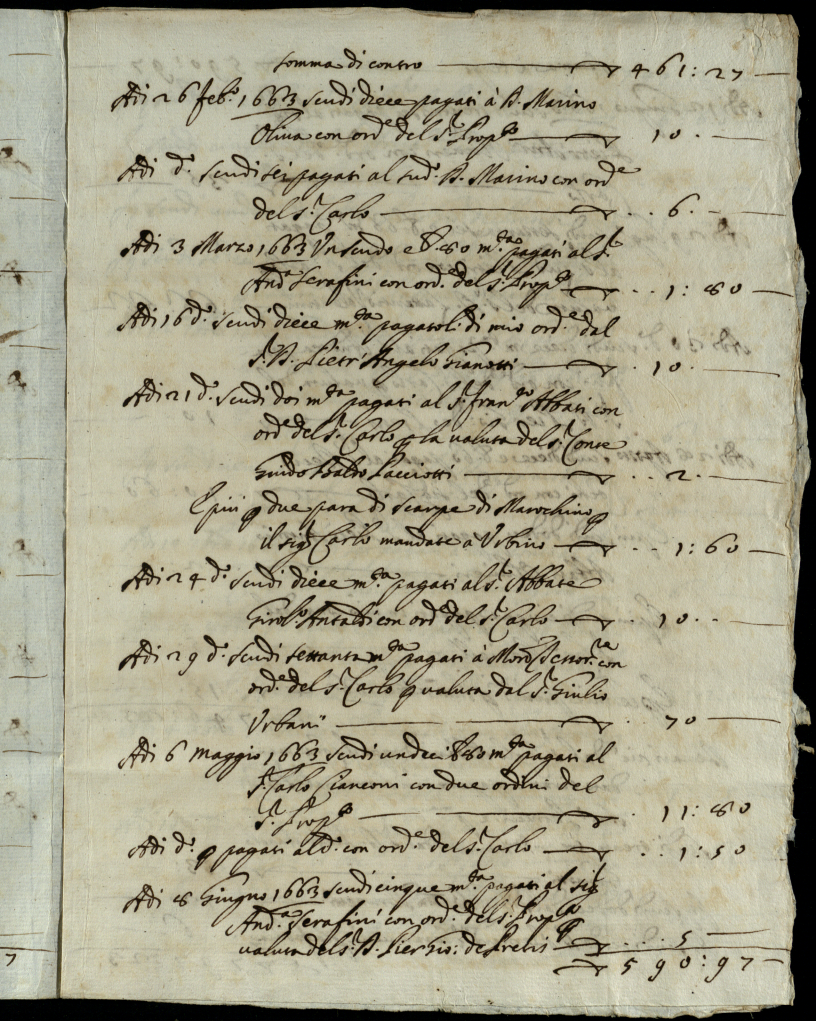 somma di contro 461:27
Adi 26 feb.o 1663 scudi diece pagati à D. Marino
Oliva con ord.e del S.r Prop.o 10.
Adi d.o scudi sei pagati al sud.o D. Marino con ord.e
del S.r Carlo 6.
Adi 3 Marzo 1663 Un scudo e b. 80 m.ta pagati al S.r
And.a Serafini con ord.e del S.r Prop.o 1:80
Adi 16 d.o scudi diece m.ta pagatoli di mio ord.e dal
S.r D. Pietr'Angelo Gianotti 10.
Adi 21 d.o scudi doi m.ta pagati al S.r Fran.co Abbati con
ord.e del S.r Carlo p la valuta del S.r Conte
Guido Baldo Pacciotti 2.
E piu p due para di scarpe di Marochino p
il sig.r Carlo mandate a Urbino 1:60
Adi 24 d.o scudi diece m.ta pagati al S.r Abbate
Girol.o Antaldi con ord.e del S.r Carlo 10.
Adi 29 d.o scudi settanta m.ta pagati à con
ord.e del S.r Carlo p valuta dal S.r Giulio
Urbani 70
Adi 6 maggio 1663 scudi undeci b 80 m.ta pagati al
S.r Carlo Cianconi con due ordini del
S.r Prop.o 11:80
Adi d.o p pagati al d.o con ord.e del S.r Carlo 1:50
Adi 8 Giugno 1663 scudi cinque m.ta pagati al sig.r
And.a Serafini con ord.e del S.r Prop.o p
valuta del S.r D. Pier Gio: de Pretis 5
590:97
7